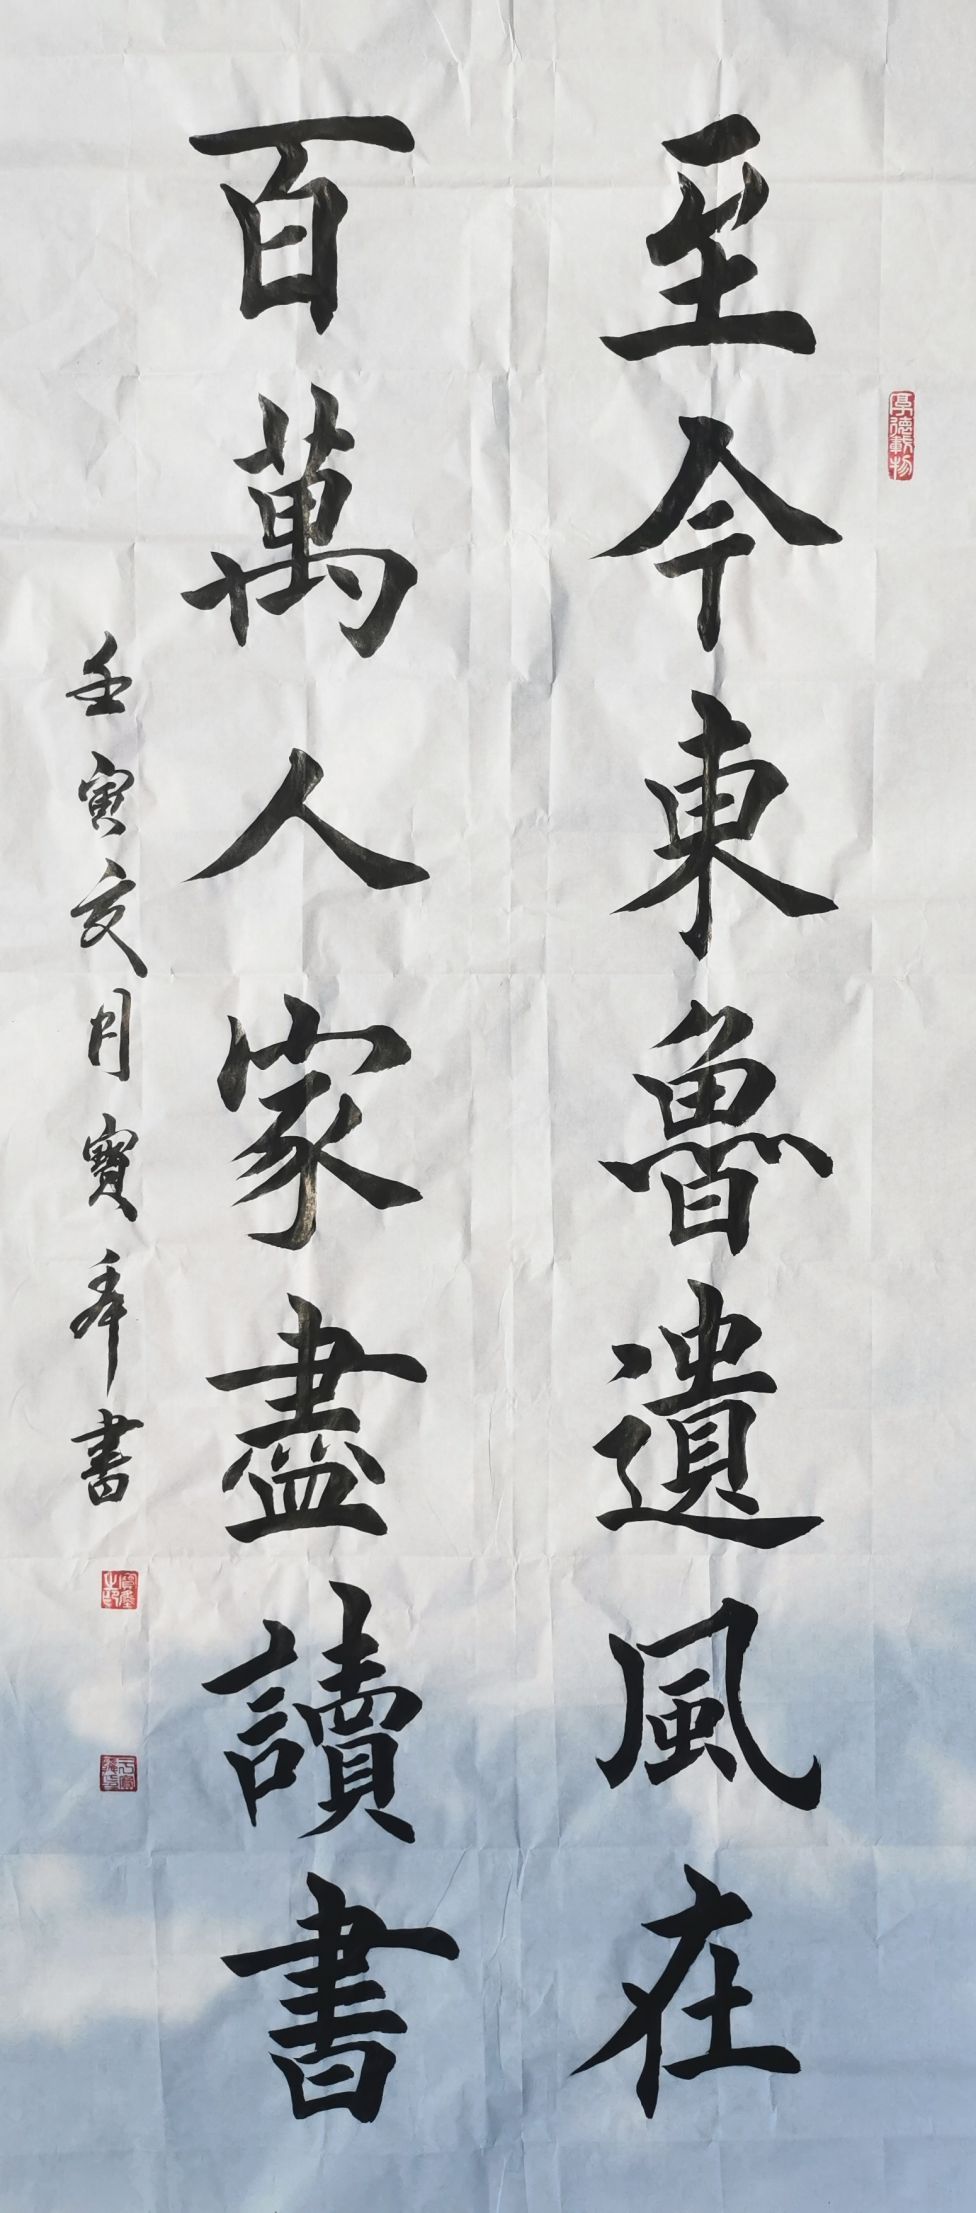 至今東魯遺風在
百萬人家盡讀書
壬寅亥月寶奉書
厚德載物